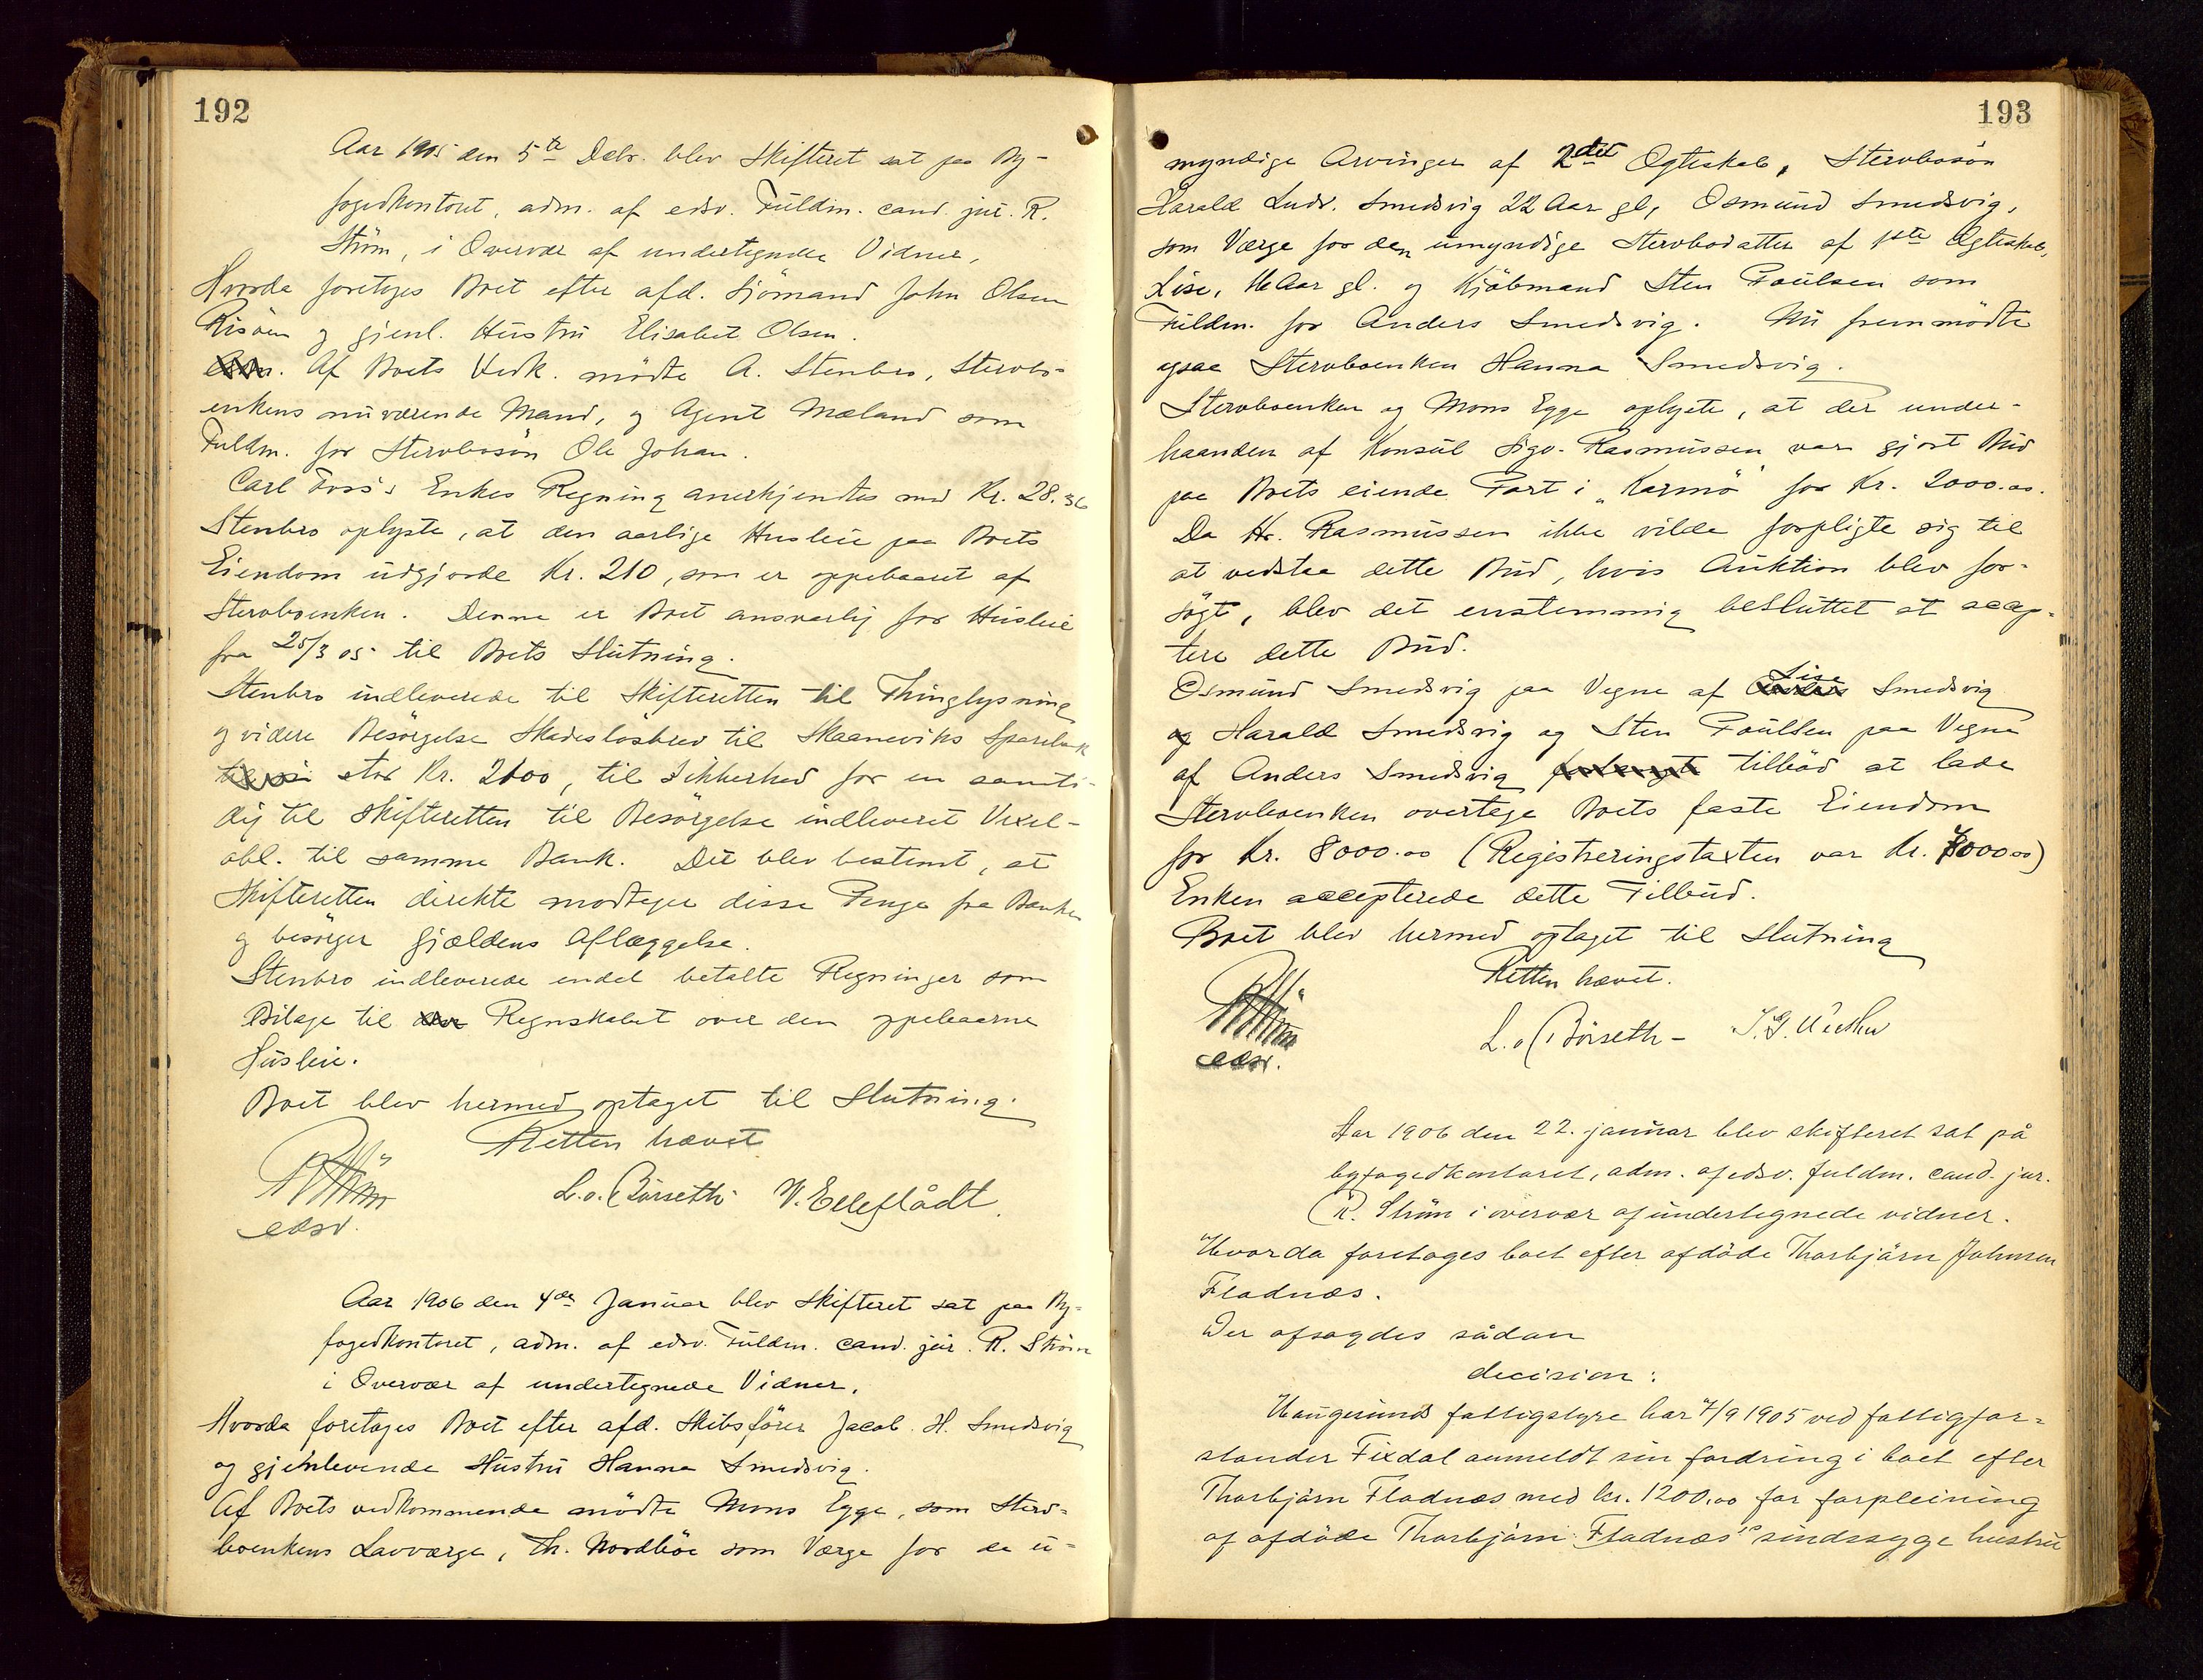 192
Aar 1905 den 5te Debr. blev Skifteret sat paa By-
fogedkontoret, adm. af edsv. Fuldm. cand. jur. R.
Strøm, i Overvær af undertegnede Vidner,
Hvorda foretoges Boet efter afd. Sjömand John Olsen
Risöen og gjenl. Hustru Elisabet Olsen.
Af Boets Vedk. mödte A. Stenbro, Stervbo-
enkens nuværende Mand, og Agent Mæland som
Fuldm. for Stervbosön Ole Johan.
Carl Foss's Enkes Regning anerkjendtes med Kr. 28.36
Stenbro oplyste, at den aarlige Husleie paa Boets
Eiendom udgjorde Kr. 210, som er oppebaaret af
Stervboenken. Denne er Boet ansvarlig for Husleie
fra 25/3 05 til Boets Slutning.
Stenbro indleverede til Skifteretten til Thinglysning
og videre Besörgelse Skadeslösbrev til Skaaneviks Sparebank
stor Kr. 2100, til Sikkerhed for en samti-
dig til Skifteretten til Besörgelse indleveret Vexel-
obl. til samme Bank. Det blev bestemt, at
Skifteretten direkte modtager disse Penge fra Banken
og besörger Gjældens Aflæggelse.
Stenbro indleverede endel betalte Regninger som
Bilage til Regnskabet over den oppebaarne
Husleie.
Boet blev hermed optaget til Slutning.
Retten hævet
RStröm
edsv.
L. o. Börseth W. Elleflådt.
Aar 1906 den 4de Januar blev Skifteret sat paa By-
fogedkontoret, adm. af edsv. Fuldm. cand. jur. R. Ström
i Overvær af undertegnede Vidner.
Hvorda foretoges Boet efter afd. Skibsförer Jacob. H. Smedsvig
og gjenlevende Hustru Hanna Smedsvig.
Af Boets vedkommende mödte Mons Egge, som Sterv-
boenkens Lavværge, Th. Nordböe som Værge for de u-
193
myndige Arvinger af 2det Ægteskab, Stervbosön
Harald Ludv. Smedsvig 22 Aar gl, Osmund Smedsvig,
som Værge for den umyndige Stervbodatter af 1ste Ægteskab,
Lise, 16 Aar gl. og Kjöbmand Sten Poulsen som
Fuldm. for Anders Smedsvig. Nu fremmödte
ogsaa Stervboenken Hanna Smedsvig.
Stervboenken og Mons Egge oplyste, at der under-
haanden af Konsul Sigv. Rasmussen var gjort Bud
paa Boets eiende Part i "Karmö" for Kr. 2000.00.
Da Hr. Rasmussen ikke vilde forpligte sig til
at vedstaa dette Bud, hvis Auktion blev for-
sögt, blev det enstemmig besluttet at accep-
tere dette Bud.
Osmund Smedsvig paa Vegne af Lise Smedsvig
og Harald Smedsvig og Sten Poulsen paa Vegne
af Anders Smedsvig tilböd at lade
Stervboenken overtage Boets faste Eiendom
for Kr. 8000.00 (Registreringstaxten var Kr. 7000.00)
Enken accepterede dette Tilbud.
Boet blev hermed optaget til Slutning
Retten hævet.
RStröm
edsv.
L. o. Börseth -
Aar 1906 den 22. januar blev skifteret sat på
byfogedkontoret, adm. af edsv. fuldm. cand. jur.
R. Ström i overvær af undertegnede vidner.
Hvorda foretoges boet efter afdöde Thorbjörn Johnsen
Fladnæs.
Der afsagdes sådan
decision:
Haugesunds fattigstyre har 7/9 1905 ved fattigfor-
stander Fixdal anmeldt sin fordring i boet efter
Thorbjörn Fladnæs med kr. 1200,00 for forpleining
af afdöde Thorbjörn Fladnæs's sindssyge hustru